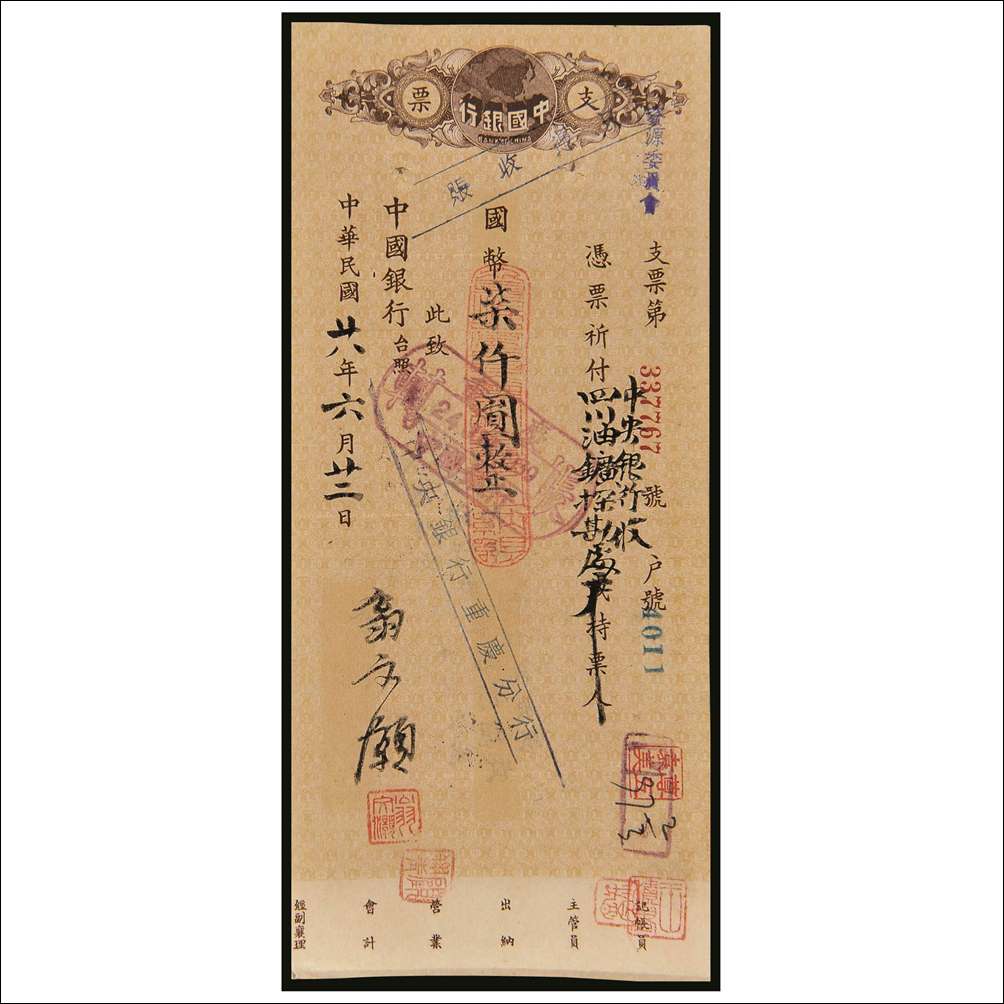 支票
中國銀行
BANK OF CHINA
資源委員會
支票第 337767 號 戶號 4011
中央銀行收
憑票祈付 四川油鑛探勘處 或持票人
國幣 柒仟圓整
此致
中國銀行 台照
中華民國 廿八年六月廿二日
翁文灝
收
賬
中央銀行重慶分行
翁文灝
記帳員
主管員
出納
營業
會計
經副襄理